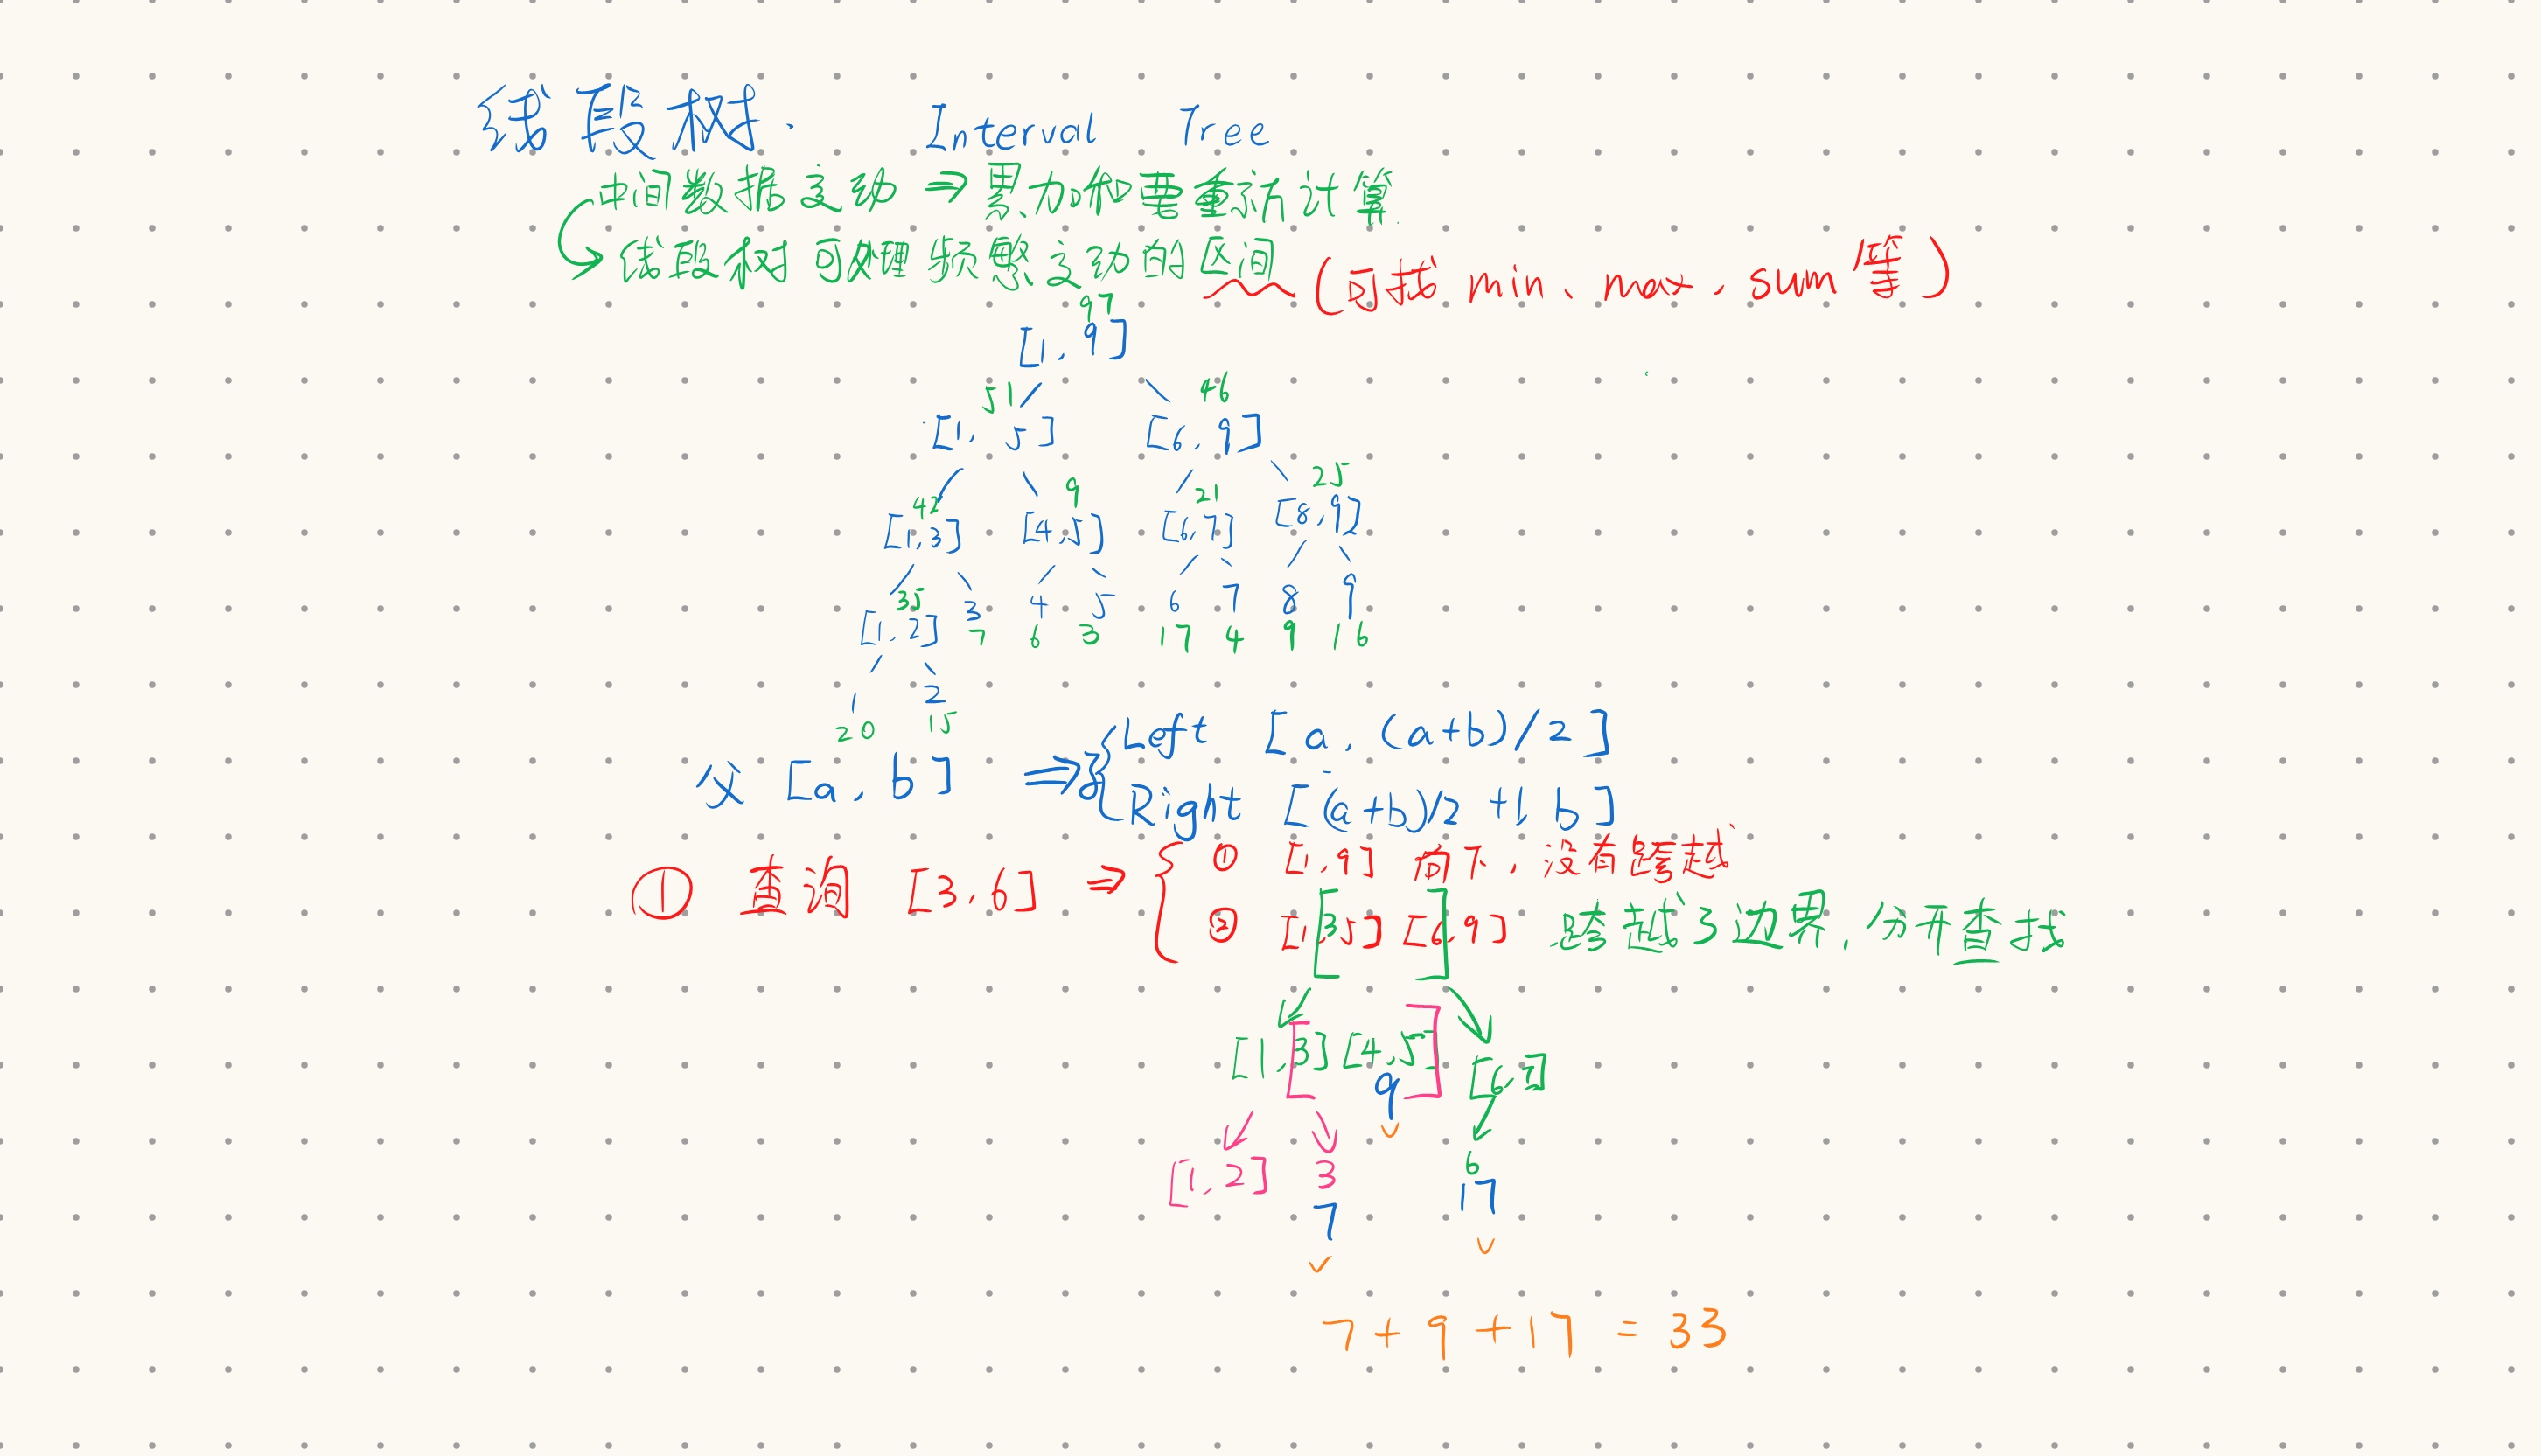 线段树. Interval Tree
中间数据变动 ⇒ 累加和要重新计算
线段树可处理频繁变动的区间 (可找 min、max、sum等)
97
[1, 9]
51 46
[1, 5] [6, 9]
42 9 21 25
[1,3] [4,5] [6,7] [8,9]
35 3 4 5 6 7 8 9
[1,2] 7 6 3 17 4 9 16
1 2
20 15
父 [a, b] ⇒ { Left [a, (a+b)/2]
Right [(a+b)/2 +1, b]
① 查询 [3,6] ⇒ { ① [1,9] 向下,没有跨越
② [1,[3 5] [6],9] 跨越了边界,分开查找
[1,[3] [4,5]] [6,7]
9
[1,2] 3 6
7 17
7 + 9 + 17 = 33